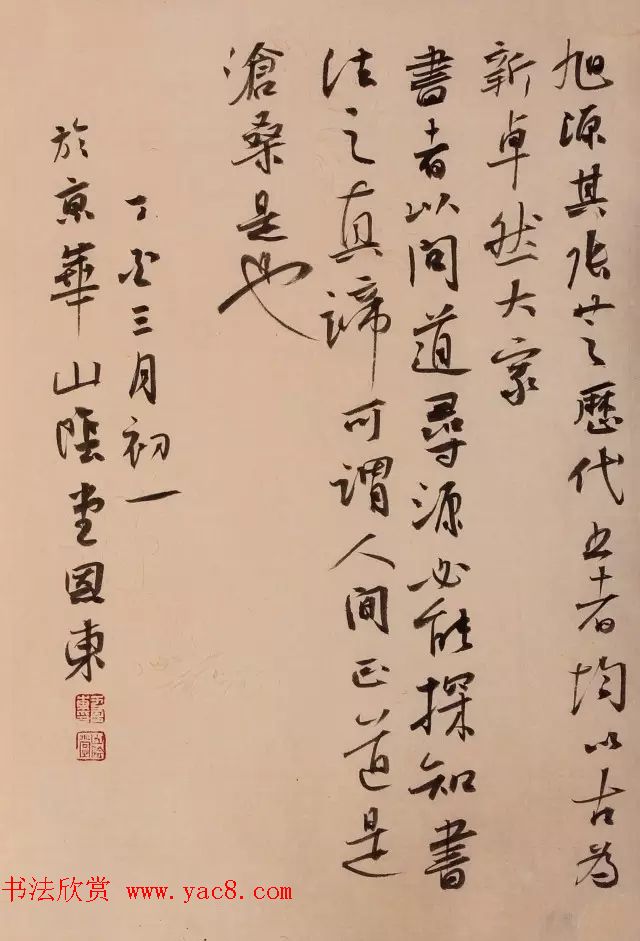 旭源其張芝歷代书者均以古為
新卓然大家
書者以问道尋源必能探知書
法之真諦可謂人间正道是
滄桑是也
丁酉三月初一
於京華山陰堂国東
书法欣赏 www.yac8.com